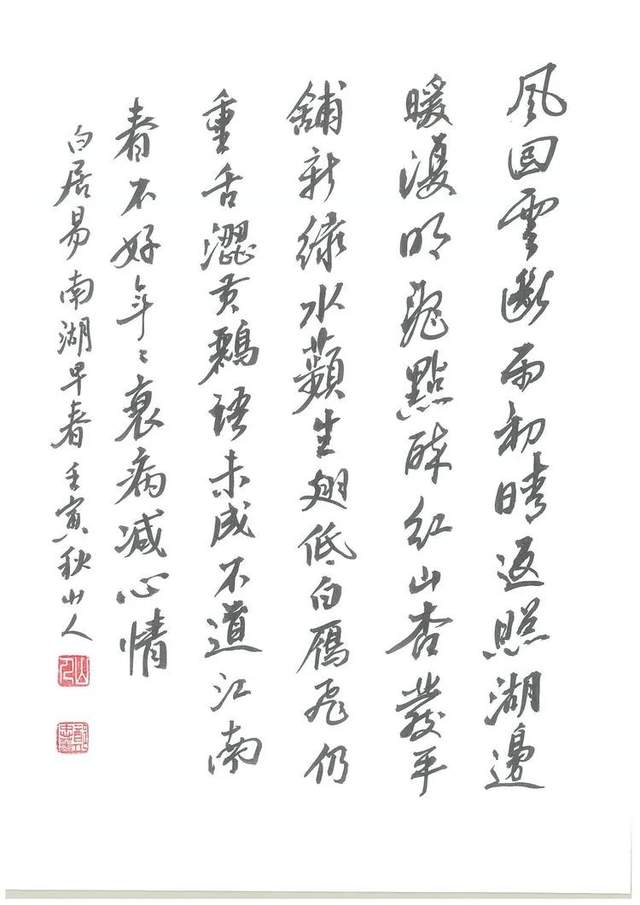 風回雲斷雨初晴返照湖邊
暖復明亂點碎紅山杏發平
鋪新綠水蘋生翅低白雁飛仍
重舌澀黃鸝語未成不道江南
春不好年〻衰病減心情
白居易南湖早春壬寅秋山人